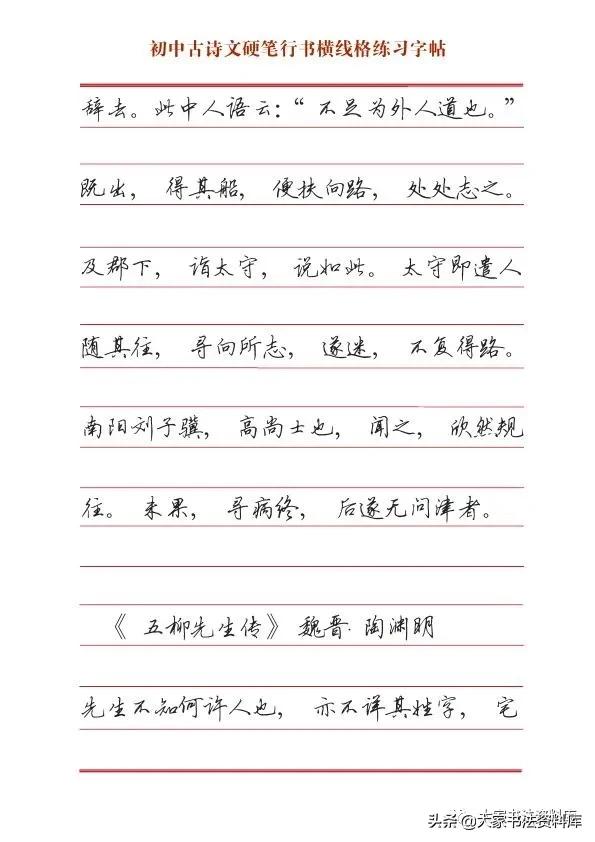 初中古诗文硬笔行书横线格练习字帖
辞去。此中人语云：“不足为外人道也。”
既出，得其船，便扶向路，处处志之。
及郡下，诣太守，说如此。太守即遣人
随其往，寻向所志，遂迷，不复得路。
南阳刘子骥，高尚士也，闻之，欣然规
往。未果，寻病终，后遂无问津者。
《五柳先生传》魏晋·陶渊明
先生不知何许人也，亦不详其姓字，宅
大家书法资料库
头条@大家书法资料库